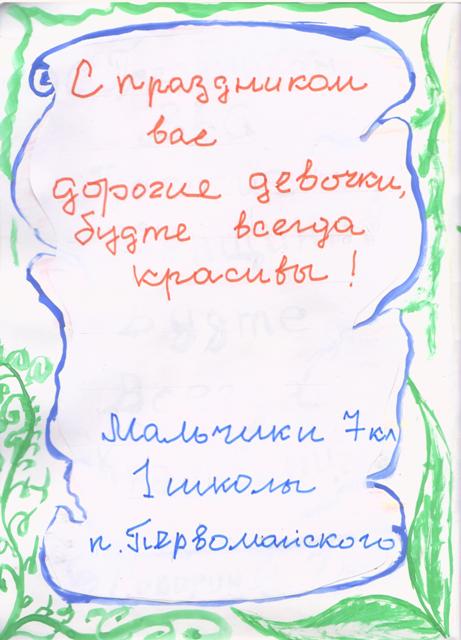 С праздником
вас
дорогие девочки,
будте всегда
красивы!
Мальчики 7 кл
1 школы
п. Первомайского